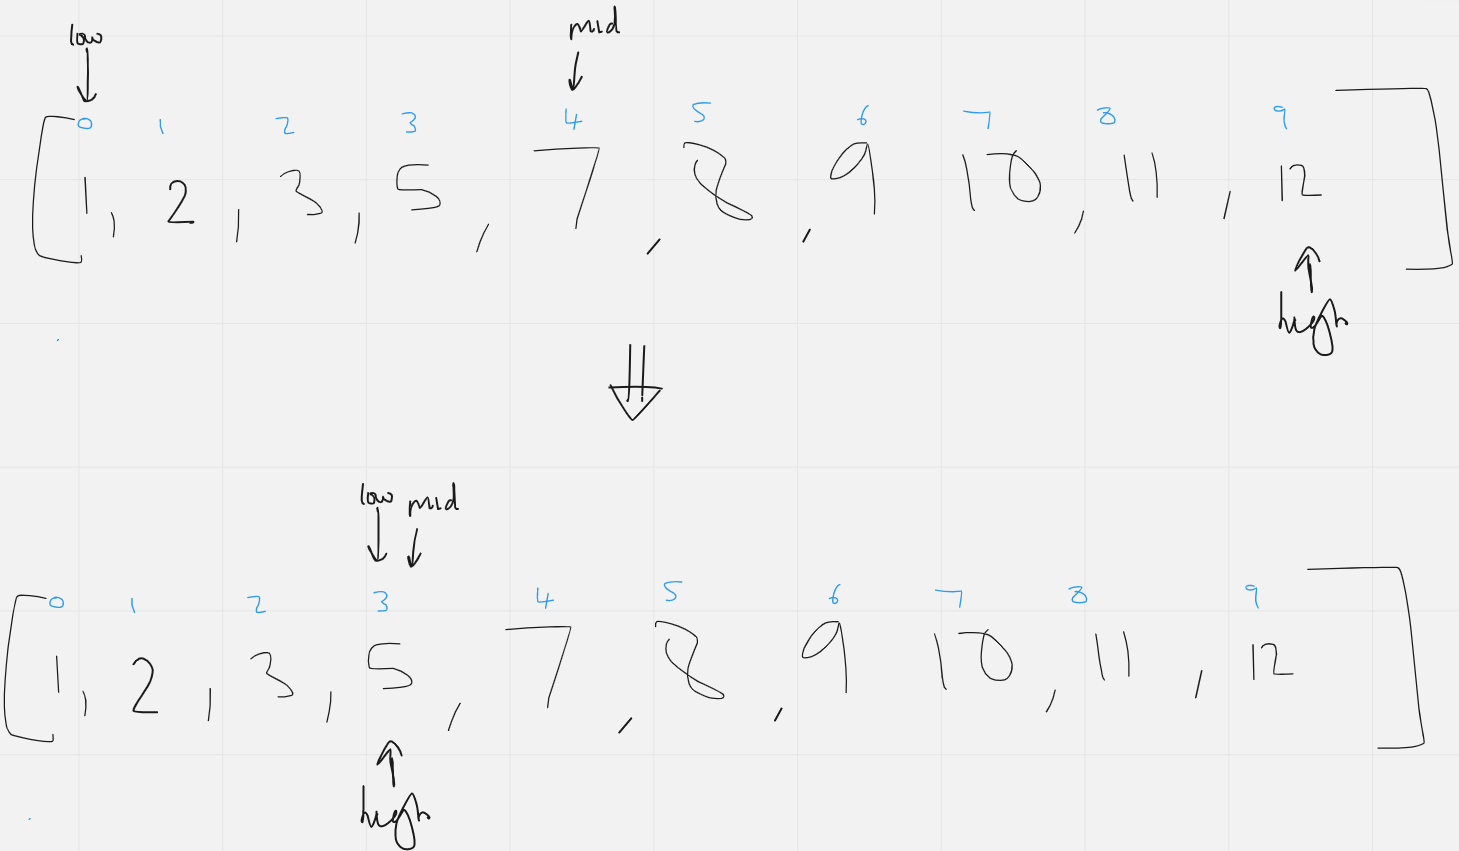 low mid
0 1 2 3 4 5 6 7 8 9
[1, 2, 3, 5, 7, 8, 9 10, 11, 12]
high
low mid
0 1 2 3 4 5 6 7 8 9
[1, 2, 3, 5, 7, 8, 9 10, 11, 12]
high